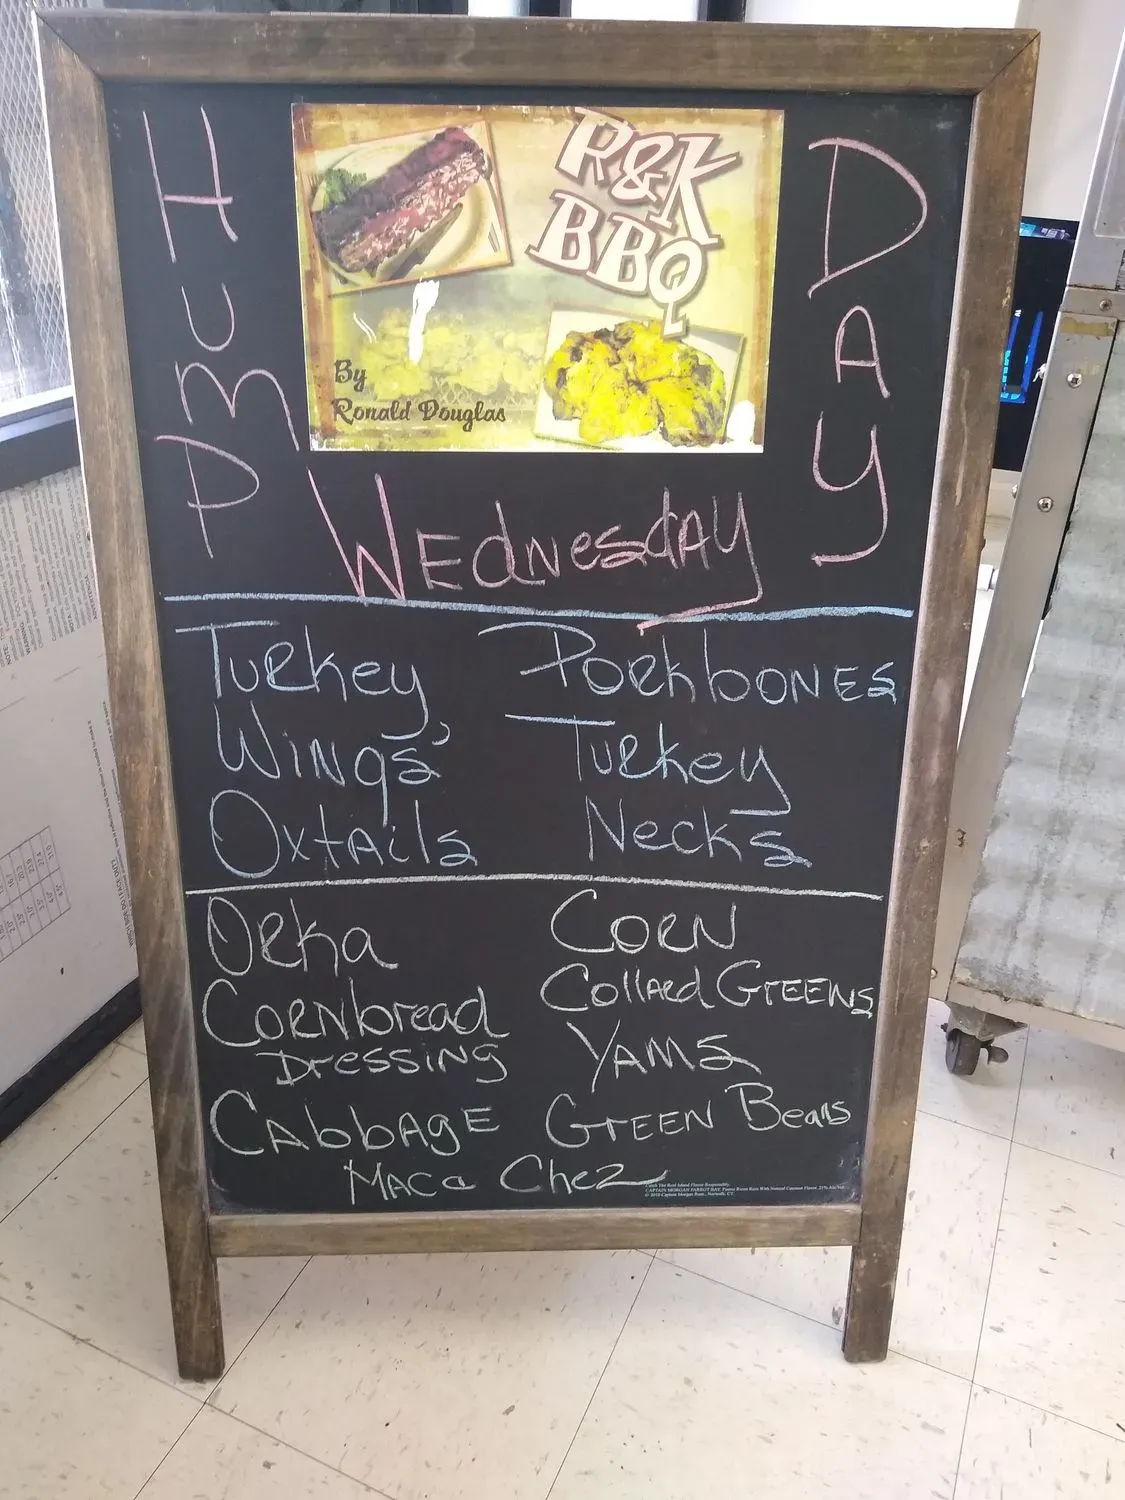 HUMP
DAY
R&K
BBQ
By
Ronald Douglas
Wednesday
Turkey Wings
Oxtails
Porkbones
Turkey
Necks
Orka
Cornbread
Dressing
Cabbage
Corn
Collard Greens
Yams
Green Beans
Maca Chez